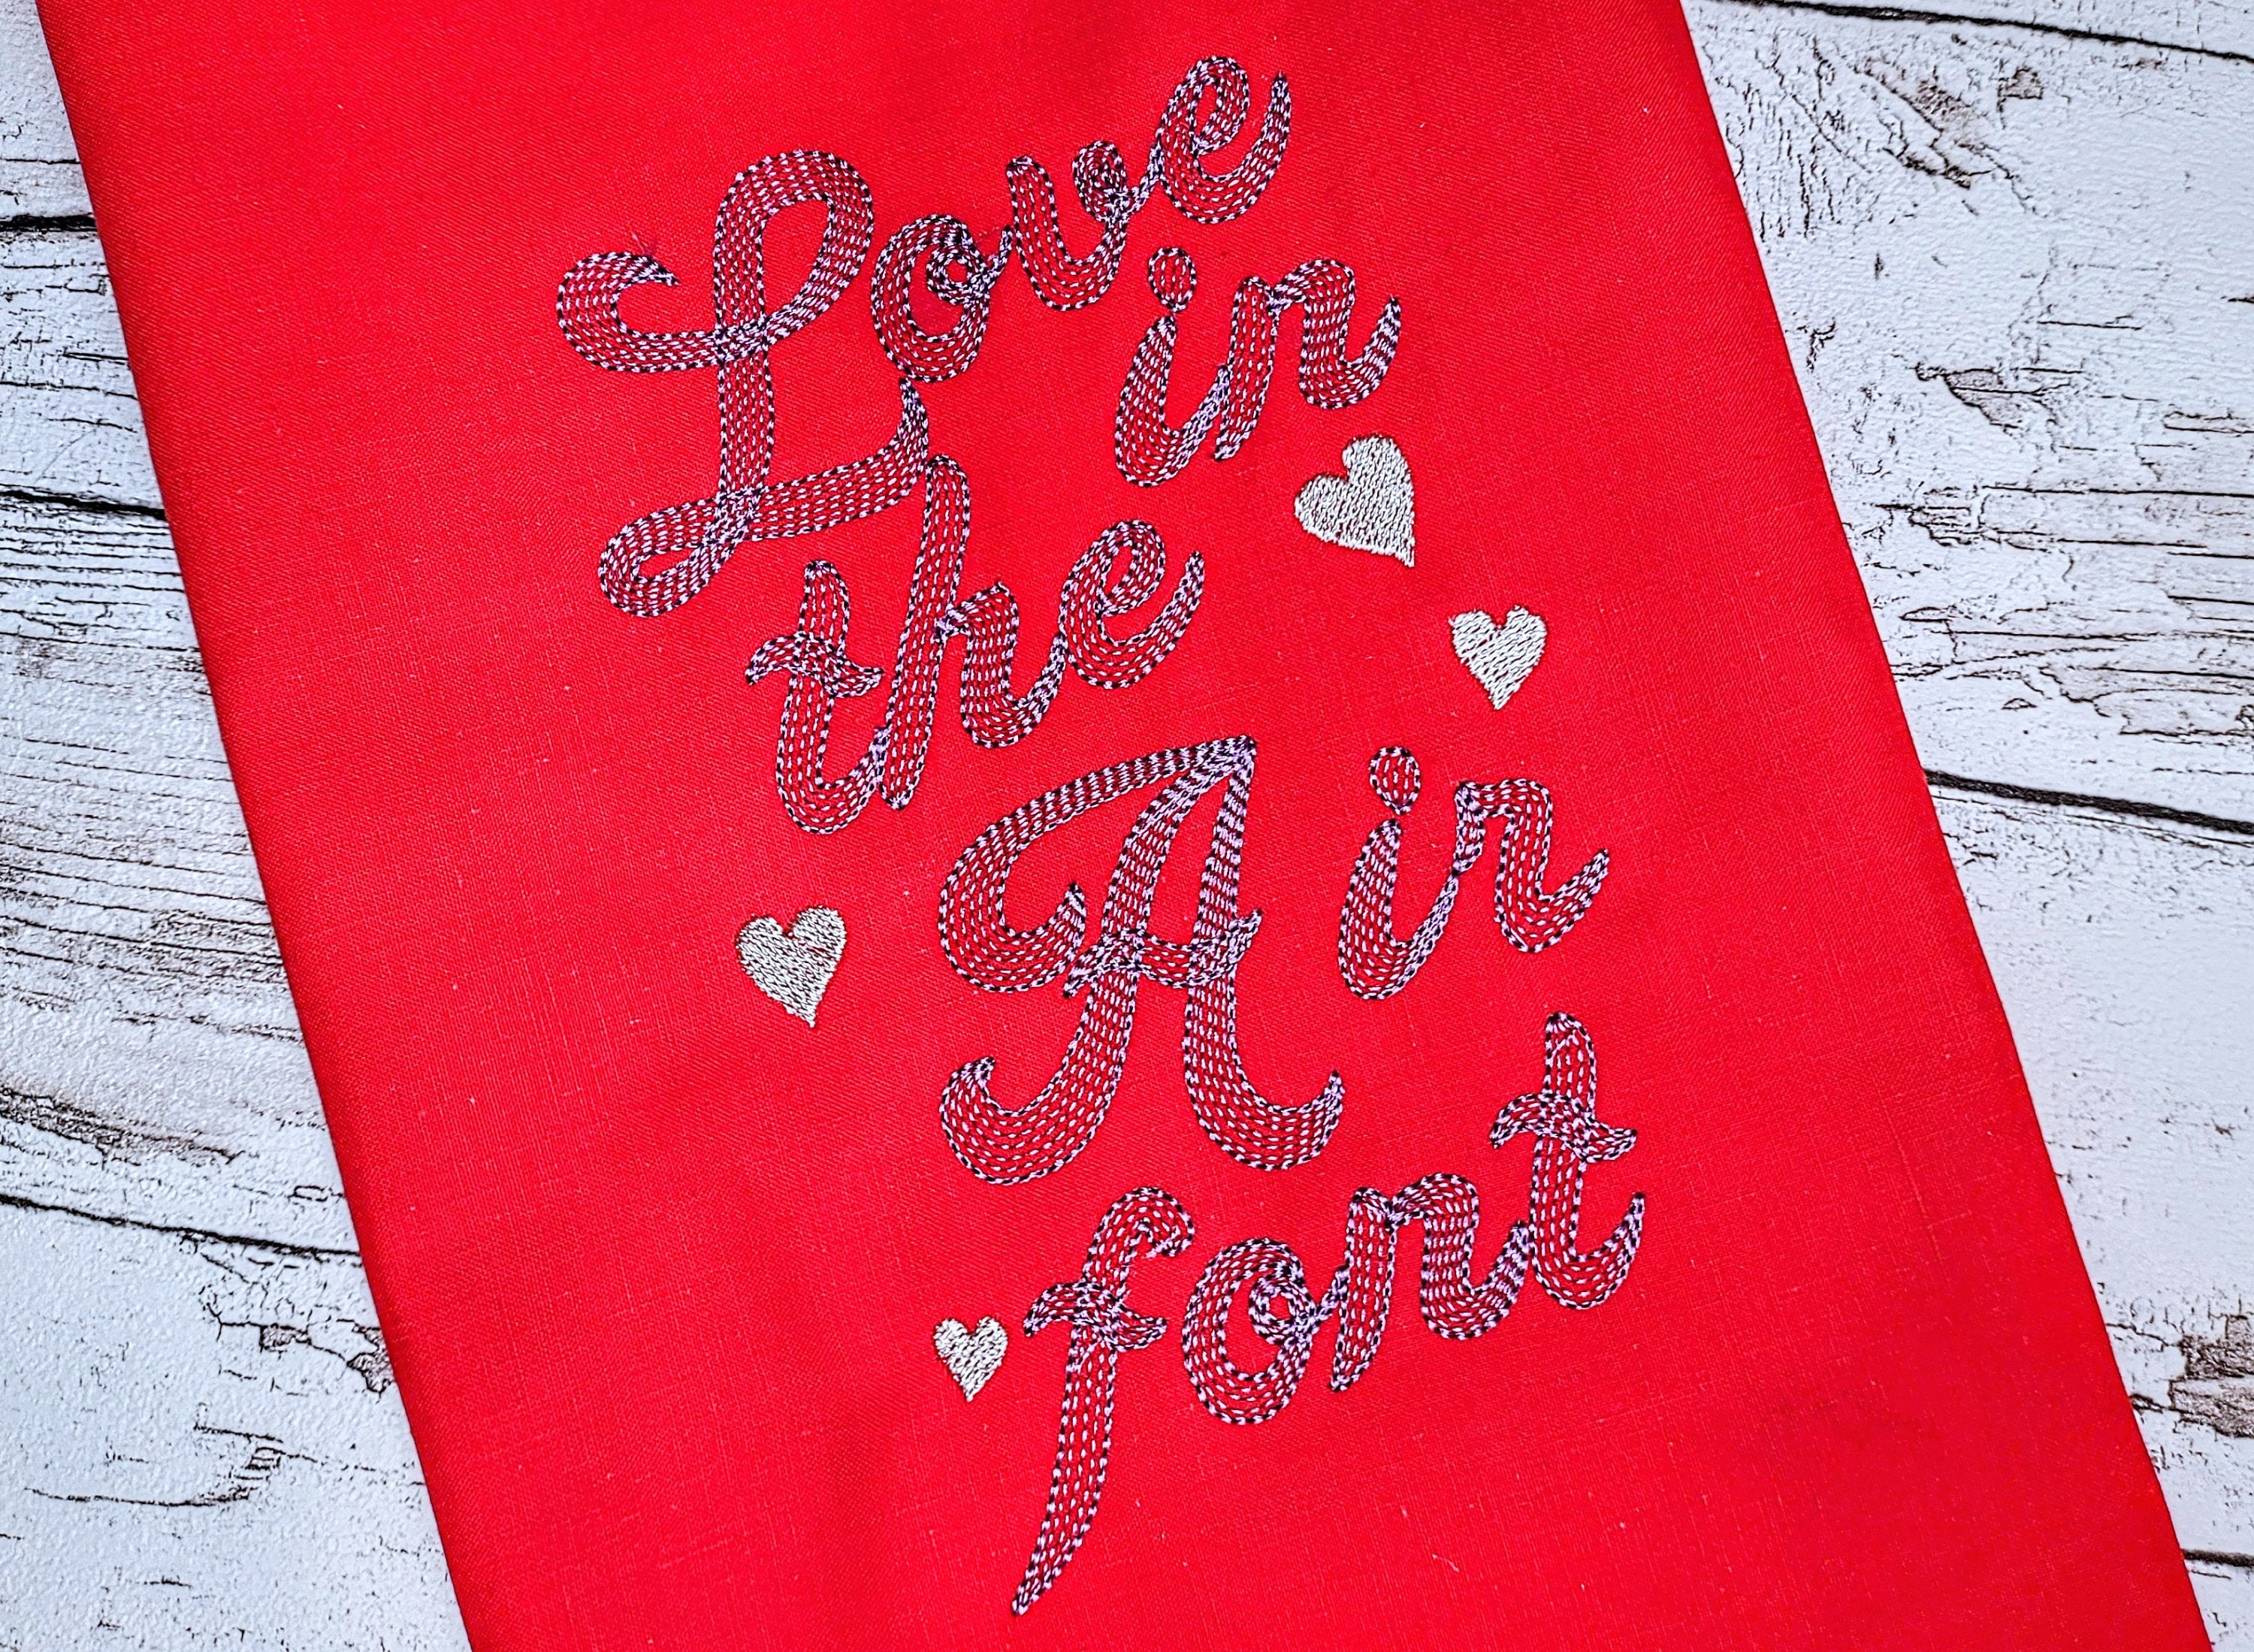 Love
in
the
Air
font